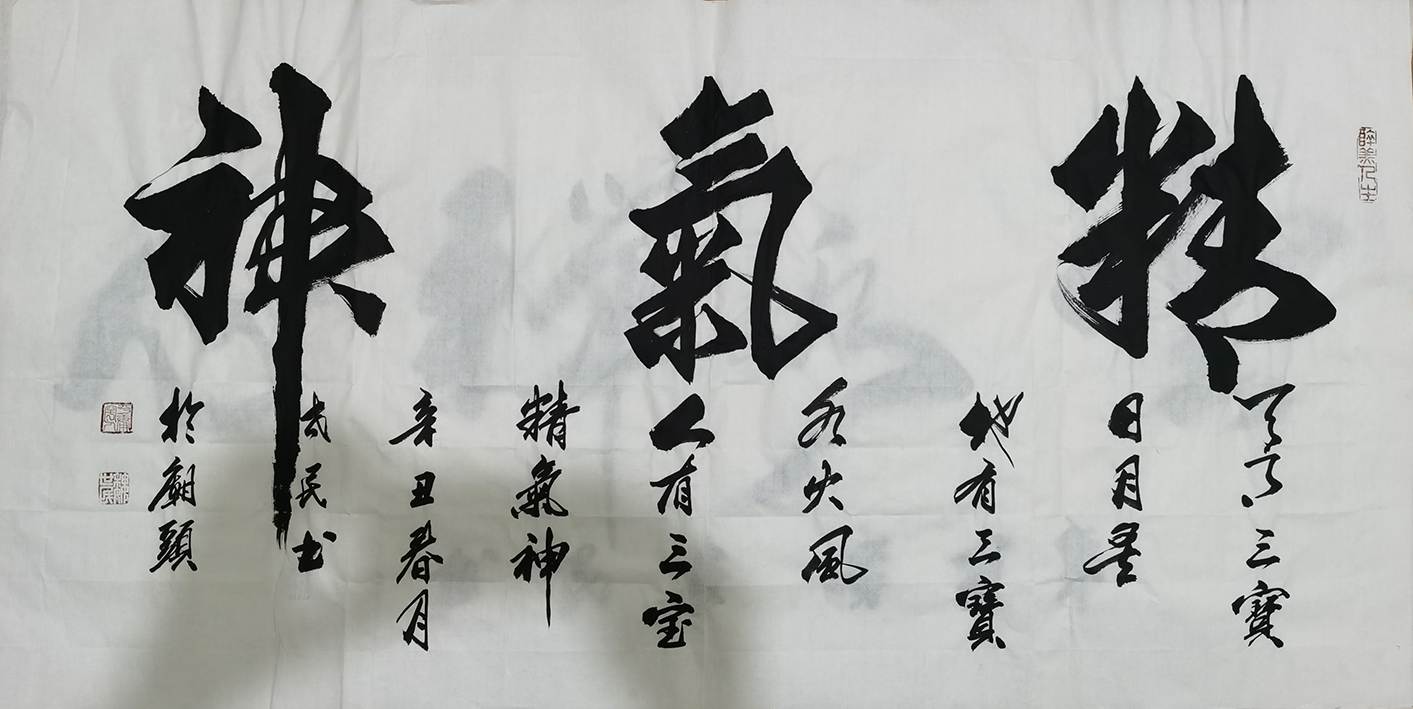 精氣神
天有三寶
日月星
地有三寶
水火風
人有三宝
精氣神
辛丑春月
民书
於廟頭